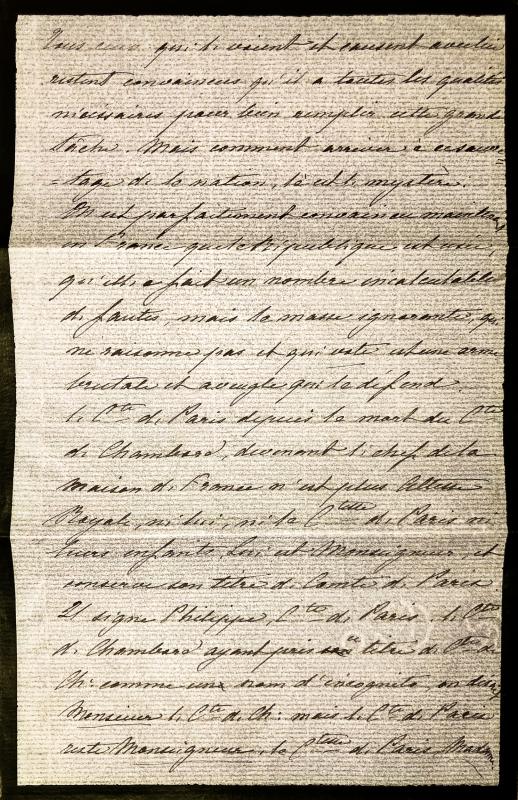 Tous ceux qui le voient et causent avec lui
restent convaincus qu'il a toutes les qualités
nécessaires pour bien remplir cette grande
tâche. Mais comment arriver à ce sauve=
=tage de la nation, là est le mystère.
On est parfaitement convaincu maintenant
en France que la République est usée,
qu'elle a fait un nombre incalculable
de fautes, mais la masse ignorante, qui
ne raisonne pas et qui vote est une arme
brutale et aveugle qui la défend.
Le Cte de Paris depuis la mort du Cte
de Chambord, devenant le chef de la
maison de France n'est plus Altesse
Royale, ni lui, ni la Ctesse de Paris ni
leurs enfants. Lui est Monseigneur, et
conserve son titre de Comte de Paris
Il signe Philippe, Cte de Paris. Le Cte
de Chambord ayant pris ce titre de Cte de
Ch: comme un nom d'incognito, on disait
Monsieur le Cte de Ch: mais le Cte de Paris
reste Monseigneur, la Ctesse de Paris, Madame